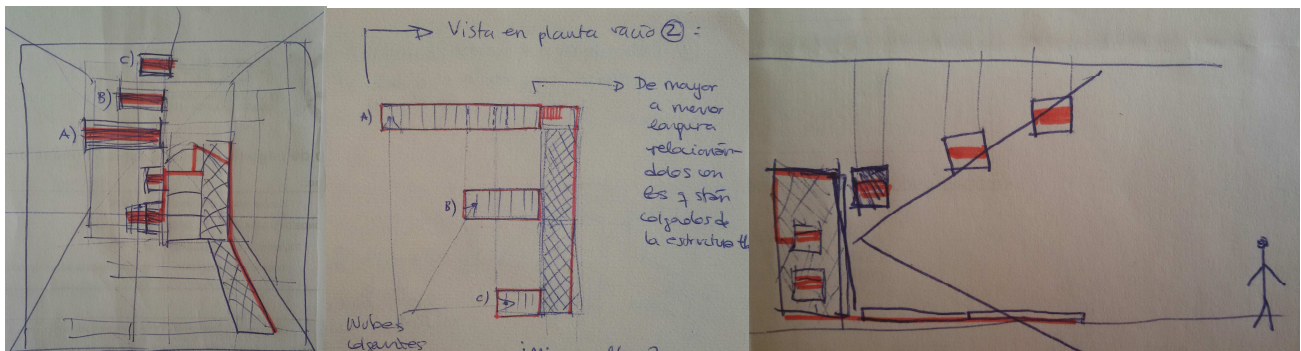 C)
B)
A)
Vista en planta vacío ② :
De mayor
a menor
largura
relacionán-
dolos con
los q stán
colgados de
la estructura
A)
B)
C)
Nubes
colgantes